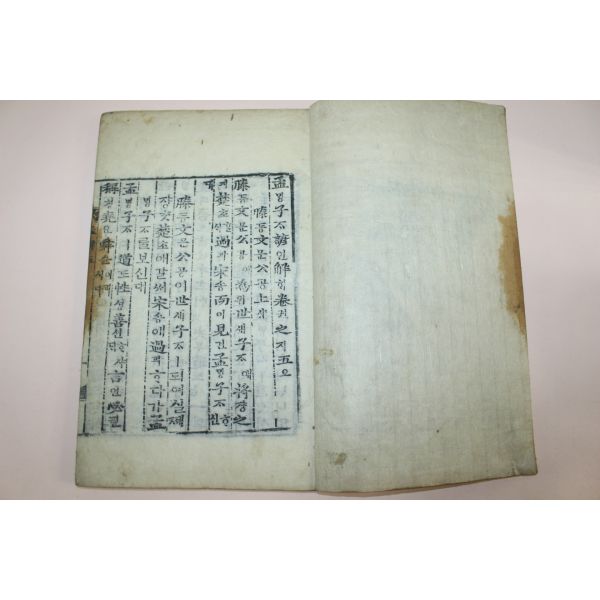 孟ᄆᆡᇰ子ᄌᆞ諺언解ᄒᆡ卷권之지五오
滕등文문公공上샹
滕등文문公공이爲위世셰子ᄌᆞ애將쟝之지
楚초ᄒᆞᆯᄉᆡ過과宋송而이見견孟ᄆᆡᇰ子ᄌᆞᄒᆞ신대
滕등文문公공이世셰子ᄌᆞㅣ되여실제
쟝ᄎᆞᆺ楚초애갈ᄉᆡ宋송애過과ᄒᆞ다가孟
ᄆᆡᇰ子ᄌᆞᄅᆞᆯ보신대
孟ᄆᆡᇰ子ᄌᆞㅣ道도性셩善션ᄒᆞ샤ᄃᆡ言언必필
稱칭堯요舜슌이러시다